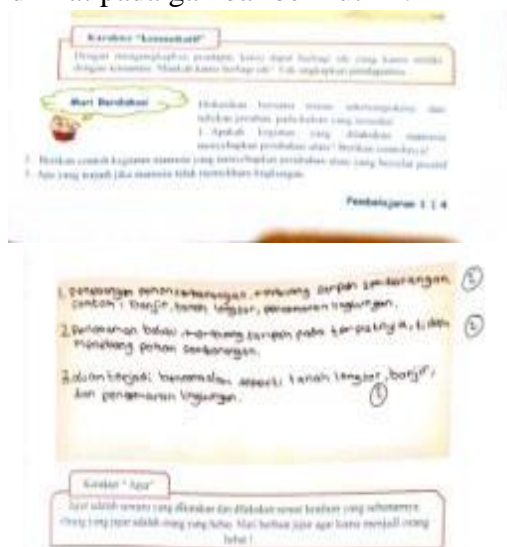 Karakter "komunikatif"
Dengan mengungkapkan pendapat, kamu dapat berbagi ide yang kamu miliki
dengan temanmu. Maukah kamu berbagi ide? Yuk ungkapkan pendapatmu.
Mari Berdiskusi
Diskusikan bersama teman dan
tuliskan jawaban pada kolom yang tersedia!
1. Apakah kegiatan yang dilakukan manusia
menyebabkan perubahan alam? Berikan contohnya!
2. Berikan contoh kegiatan manusia yang menyebabkan perubahan alam yang bersifat positif
3. Apa yang terjadi jika manusia tidak memelihara lingkungan.
Pembelajaran 1 | 4
1. penebangan pohon sembarangan, membuang sampah sembarangan
contoh : banjir, tanah longsor, pencemaran lingkungan.
2. penanaman bakau, membuang sampah pada tempatnya, tidak
menebang pohon sembarangan.
3. akan terjadi bencana alam seperti tanah longsor, banjir,
dan pencemaran lingkungan.
Karakter "Jujur"
Jujur adalah sesuatu yang dikatakan dan dilakukan sesuai keadaan yang sebenarnya.
Orang yang jujur adalah orang yang hebat. Mari berlatih jujur agar kamu menjadi orang
hebat !